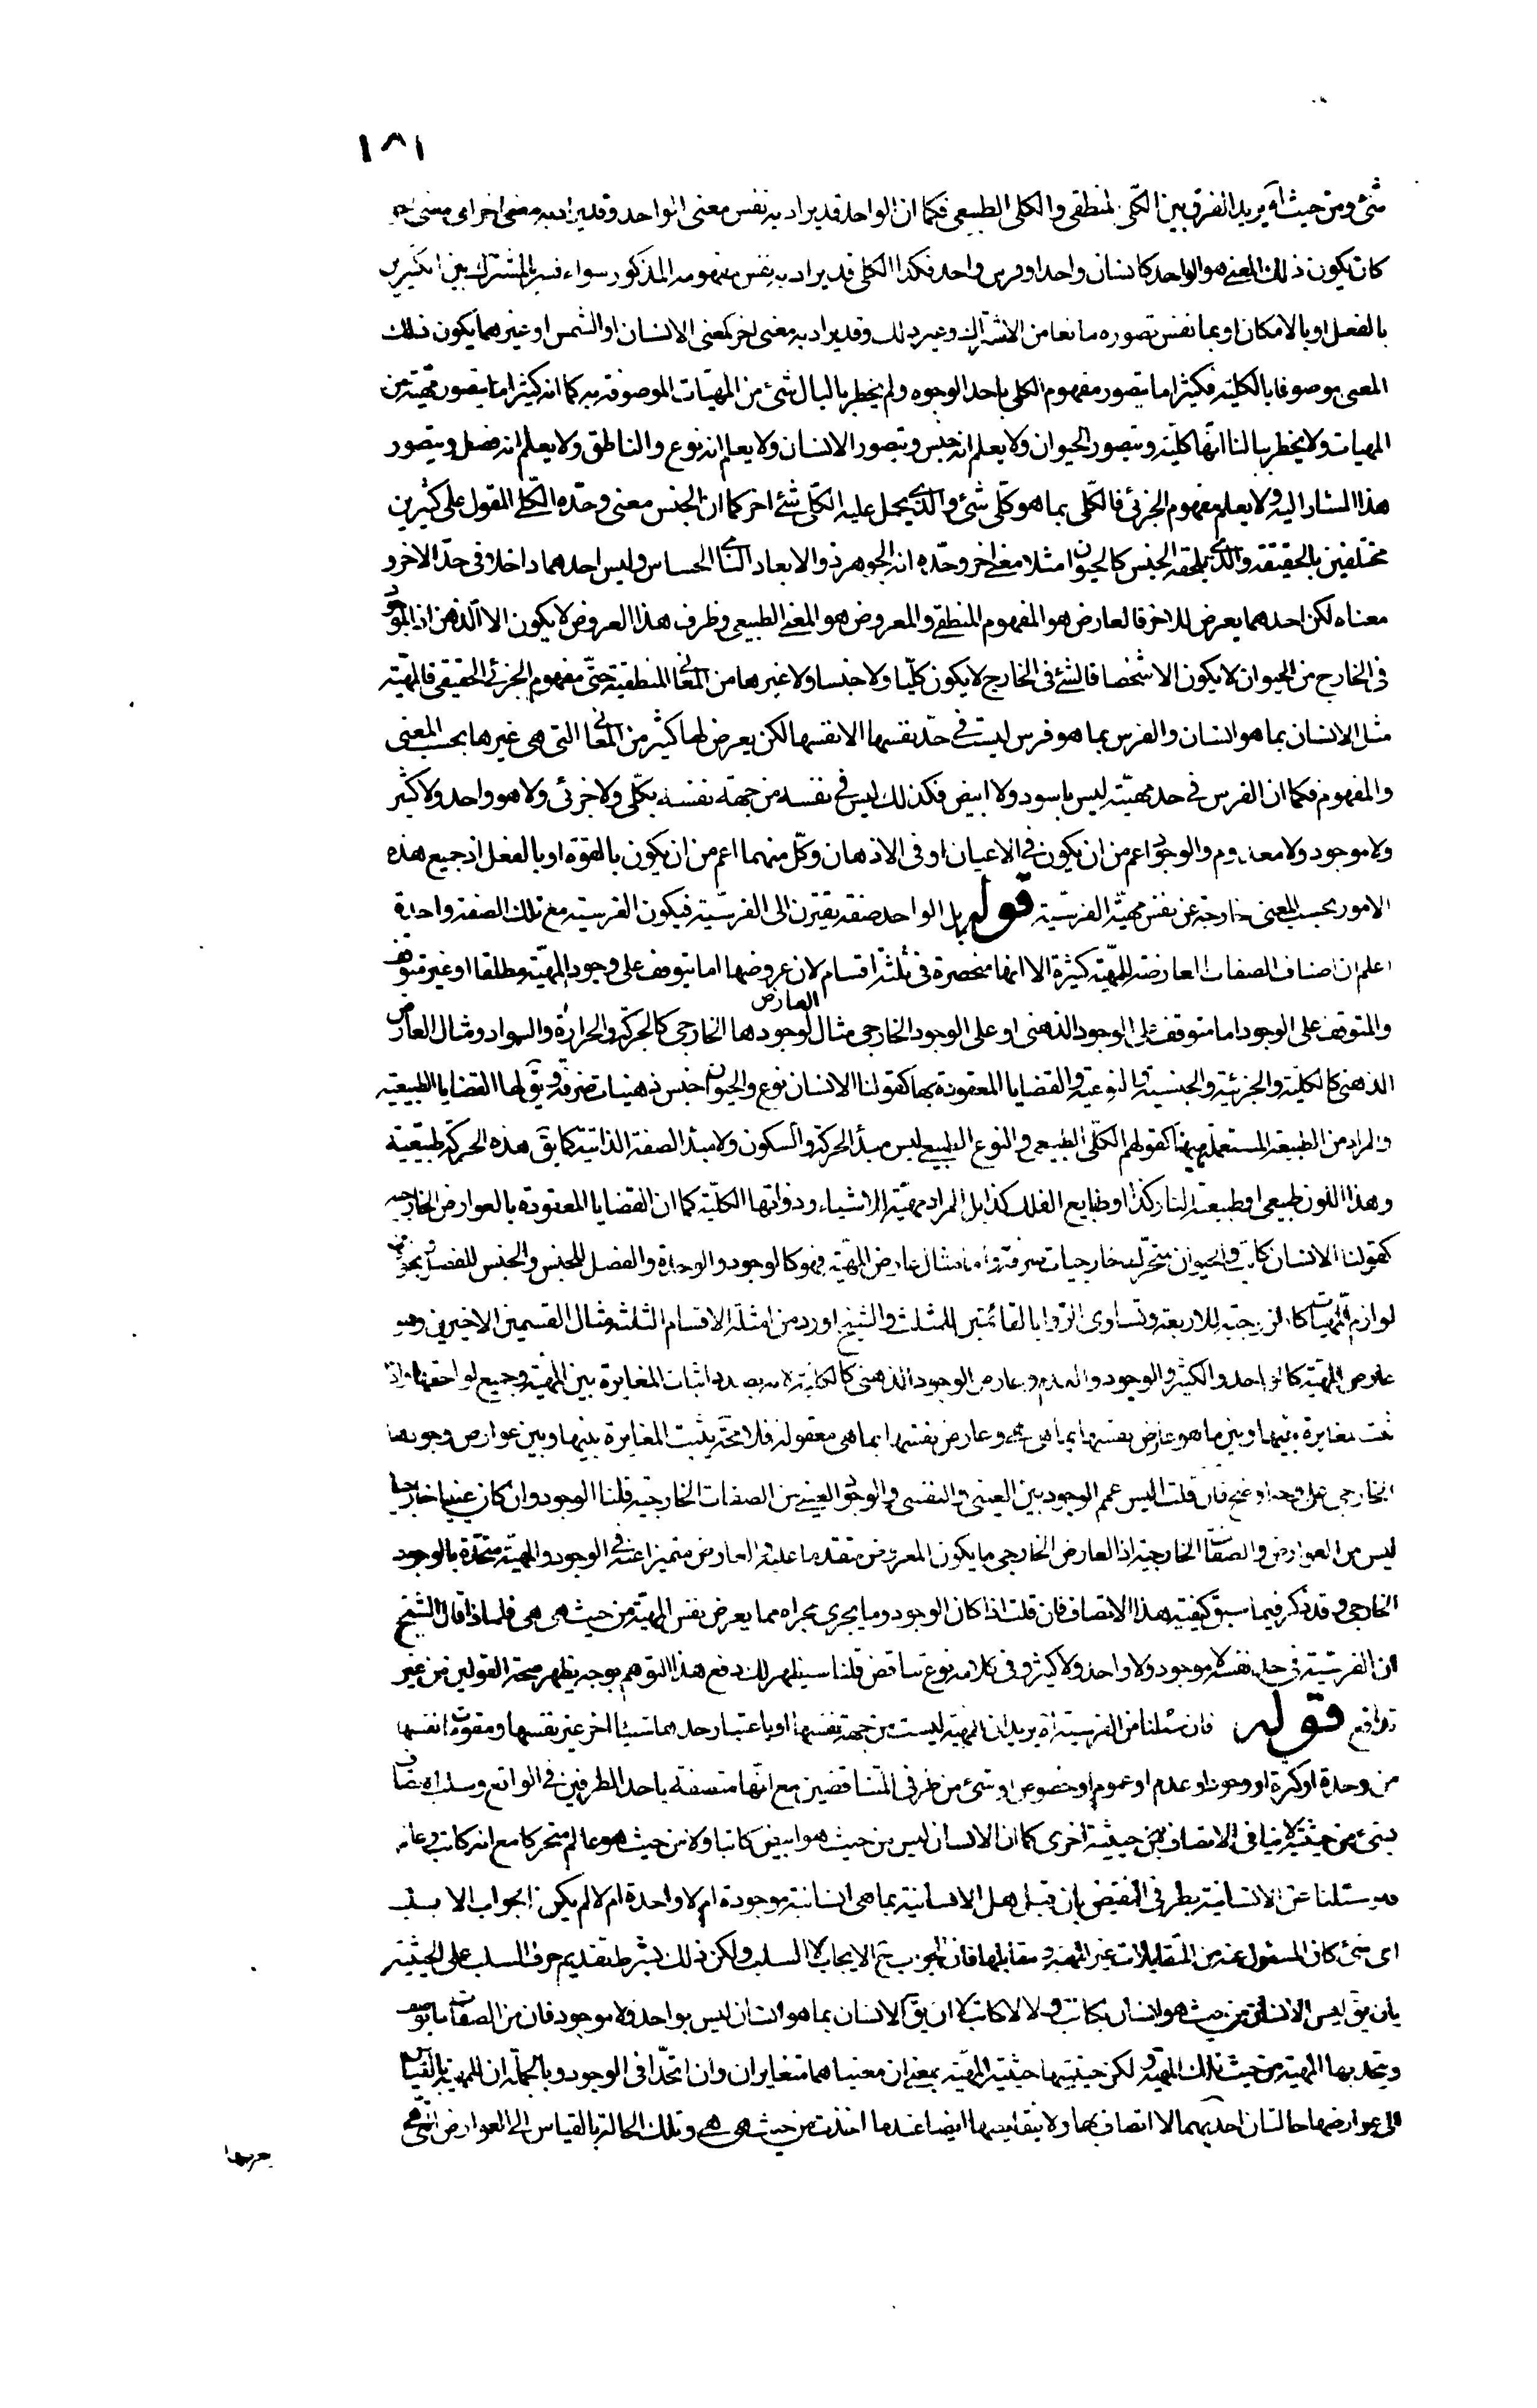 ١٨١
شئ ومن حيث اه يريد الفرق بين الكلى المنطقى والكلى الطبيعى فكما ان الواحد قد يراد به نفس معنى الواحد وقد يراد به معنى اخر اى معنى
كان يكون ذلك المعنى هو الواحد كانسان واحد او فرس واحد فكذا الكلى قد يراد به نفس مفهومه المذكور سواء فسر بالمشترك بين الكثيرين
بالفعل او بالامكان او بما نفس تصوره ما نعا من الاشتراك وغير ذلك وقد يراد به معنى اخر كمعنى الانسان او الشمس او غيرهما يكون ذلك
المعنى موصوفا بالكلية فكثيرا ما يتصور مفهوم الكلى باحد الوجوه ولم يخطر بالبال شئ من المهيات الموصوفة به كما انه كثيرا ما يتصور مهية من
المهيات ولا يخطر ببالنا انها كلية ويتصور الحيوان ولا يعلم انه جنس ويتصور الانسان ولا يعلم انه نوع والناطق ولا يعلم انه فصل ويتصور
هذا المشار اليه ولا يعلم مفهوم الجزئى فالكلى بما هو كلى شئ والذى يحمل عليه الكلى شئ اخر كما ان الجنس معنى وحده الكلى المقول على كثيرين
مختلفين بالحقيقة والذى يلحقه الجنس كالحيوان مثلا معنى اخر وحده انه الجوهر ذو الابعاد النامى الحساس وليس احدهما داخلا فى حد الاخر و
معناه لكن احدهما يعرض للاخر فالعارض هو المفهوم المنطقى والمعروض هو المعنى الطبيعى وظرف هذا العروض لا يكون الا الذهن اذ الموجود
فى الخارج من الحيوان لا يكون الا شخصا فالشئ فى الخارج لا يكون كليا ولا جنسا ولا غيرها من المعانى المنطقية حتى مفهوم الجزئى الحقيقى فالمهية
مثل الانسان بما هو انسان والفرس بما هو فرس ليست فى حد نفسها الا نفسها لكن يعرض لها كثير من المعانى التى هى غيرها بحسب المعنى
والمفهوم فكما ان الفرس فى حد مهيته ليس باسود ولا ابيض فكذلك ليس فى نفسه من جهة نفسه بكلى ولا جزئى ولا هو واحد ولا كثير
ولا موجود ولا معدوم والوجود اعم من ان يكون فى الاعيان او فى الاذهان وكل منهما اعم من ان يكون بالقوة او بالفعل اذ جميع هذه
الامور بحسب المعنى خارجة عن نفس مهية الفرسية قوله بل الواحد صفة يقترن الى الفرسية فيكون الفرسية مع تلك الصفة واحدة
اعلم ان اصناف الصفات العارضة للمهية كثيرة الا انها منحصرة فى ثلثة اقسام لان عروضها اما يتوقف على وجود المهية مطلقا او غير متوقف
والمتوقف على الوجود اما متوقف على الوجود الذهنى او على الوجود الخارجى مثال العارض لوجودها الخارجى كالحركة والحرارة والسواد ومثال العارض
الذهنى كالكلية والجزئية والجنسية والنوعية والقضايا المعقودة بها كقولنا الانسان نوع والحيوان جنس ذهنيات صرفة ويق لها القضايا الطبيعية
والمراد من الطبيعة المستعملة ههنا كقولهم الكلى الطبيعى والنوع الطبيعى ليس مبدأ الحركة والسكون ولا مبدأ الصفة الذاتية كما يق هذه الحركة طبيعية
وهذا اللون طبيعى او طبيعة النار كذا او طبايع الفلك كذا بل المراد مهية الاشياء وذواتها الكلية كما ان القضايا المعقودة بالعوارض الخارجية
كقولنا الانسان كاتب والحيوان متحرك خارجيات صرفة واما مثال عارض المهية فهو كالوجود والوحدة والفصل للجنس والجنس للفصل
لوازم المهيات كالزوجية للاربعة وتساوى الزوايا لقائمتين للمثلث والشيخ اورد من امثلة الاقسام الثلثة مثال القسمين الاخيرين وهو
عارض المهية كالواحد والكثير والوجود والعدم وعارض الوجود الذهنى كالكلية لانه بصدد اثبات المغايرة بين المهية وجميع لواحقها واذا
ثبت مغايرة بينها وبين ما هو عارض نفسها بما هى هى وعارض نفسها بما هى معقولة فلا محة يثبت المغايرة بينها وبين عوارض وجودها
الخارجى على وجه اوضح فان قلت اليس عمم الوجود بين العينى والنفسى والوجود العينى من الصفات الخارجية قلنا الوجود وان كان عينيا خارجيا
ليس من العوارض والصفات الخارجية اذ العارض الخارجى ما يكون المعروض متقدما عليه والعارض متميزا عنه فى الوجود والمهية متحدة بالوجود
الخارجى وقد ذكر فيما سبق كيفية هذا الاتصاف فان قلت اذا كان الوجود وما يجرى مجراه مما يعرض نفس المهية من حيث هى هى فلماذا قال الشيخ
ان الفرسية فى حد نفسها لا موجود ولا واحد ولا كثير وفى كلامه نوع تناقض قلنا سيظهر لك دفع هذا التوهم بوجه يظهر صحة القولين من غير
تدافع قوله فان سئلنا من الفرسية اه يريد ان المهية ليست من جهة نفسها او باعتبار حدها شيئا اخر غير نفسها ومقومات نفسها
من وحدة او كثرة او وجود او عدم او عموم او خصوص او شئ من طرفى المتناقضين مع انها متصفة باحد الطرفين فى الواقع وسلب اتصاف
بشئ من حيثية لا ينافى الاتصاف من حيثية اخرى كما ان الانسان ليس من حيث هو ابيض كاتبا ولا من حيث هو عالم متحركا مع انه كاتب وعالم
فلو سئلنا عن الانسانية بطرفى النقيض بان قيل هل الانسانية بما هى انسانية موجودة ام لا واحدة ام لا لم يكن الجواب الا بسلب
اى شئ كان المسئول عنه من المتقابلات غير المهية ومقابلها فان الجواب ح الايجاب لا السلب ولكن ذلك بشرط تقديم حرف السلب على الحيثية
بان يق ليس الانسان من حيث هو انسان بكاتب ولا لا كاتب لا ان يق الانسان بما هو انسان ليس بواحد ولا موجود فان من الصفات ما يوصف
ويتحد بها المهية من حيث تلك المهية لكن حيثيتها حيثية المهية بمعنى ان معنييهما متغايران وان اتحدا فى الوجود وبالجملة ان للمهية بالقياس
الى عوارضها حالتان احديهما الا اتصاف بها ولا بنقايضها ايضا عندما اخذت من حيث هى هى وتلك الحالة بالقياس الى العوارض التى